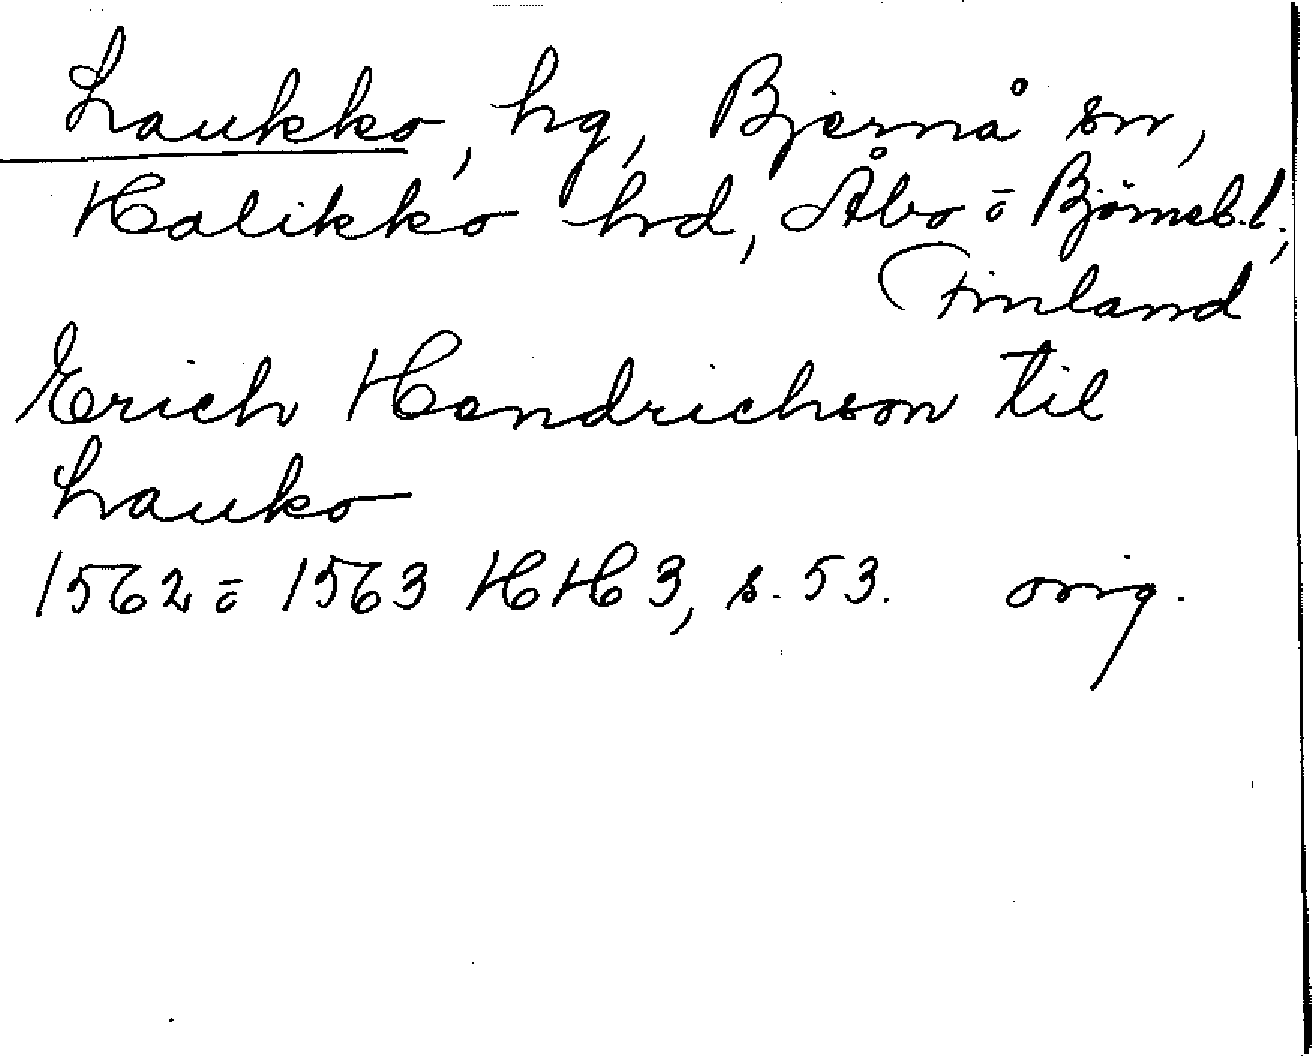 Laukko, hg, Bjernå sn,
Halikko hd, Åbo o Björneb.l.,
Finland
Erich Hendrichson til
Lauko
1562 o 1563 HH 3, s. 53. orig.